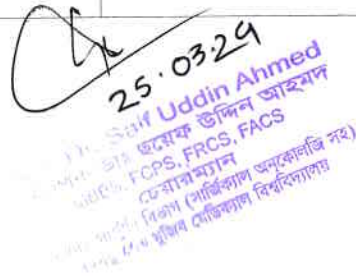 25.03.24
Saif Uddin Ahmed
ডাঃ ছয়েফ উদ্দিন আহমদ
FCPS, FRCS, FACS
চেয়ারম্যান
বিভাগ (সার্জিক্যাল অনকোলজি সহ)
মুজিব মেডিক্যাল বিশ্ববিদ্যালয়